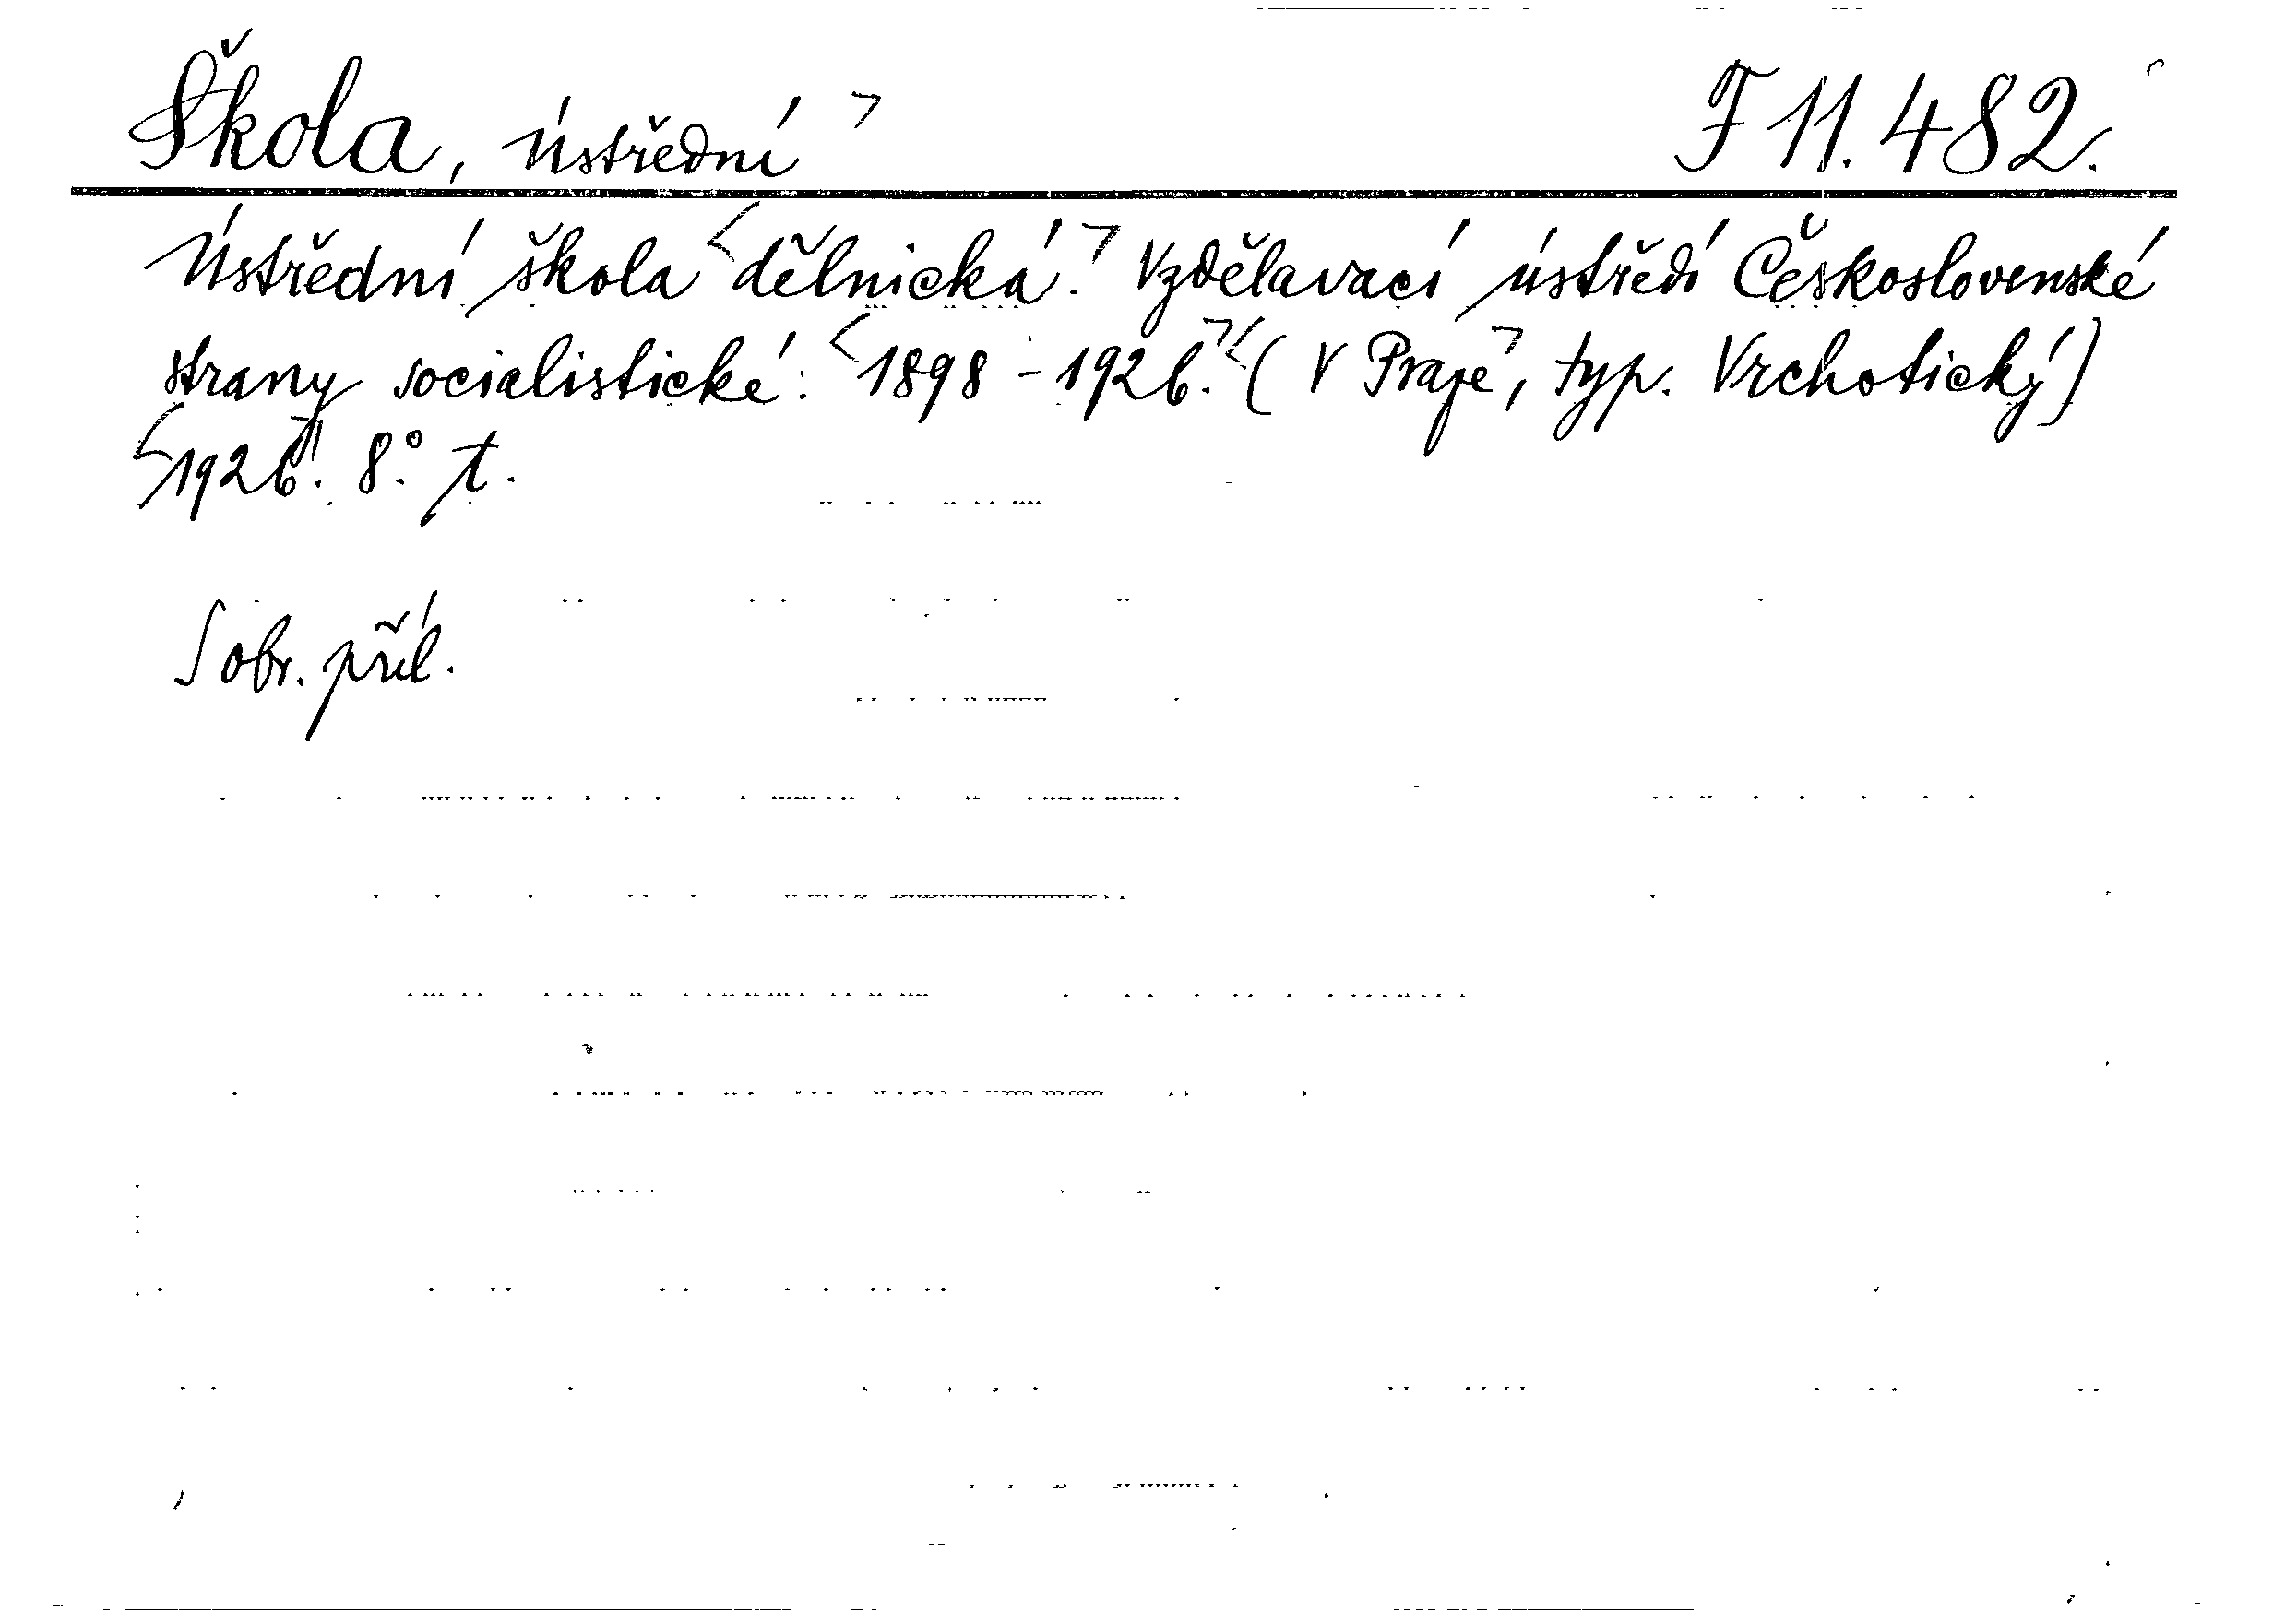 Škola, ústřední F 11.482.
Ústřední škola dělnická. Vzdělavací ústředí Československé
strany socialistické. 1898 - 1926. (V Praze, typ. Vrchotický)
1926. 8° t.
S obr. příl.